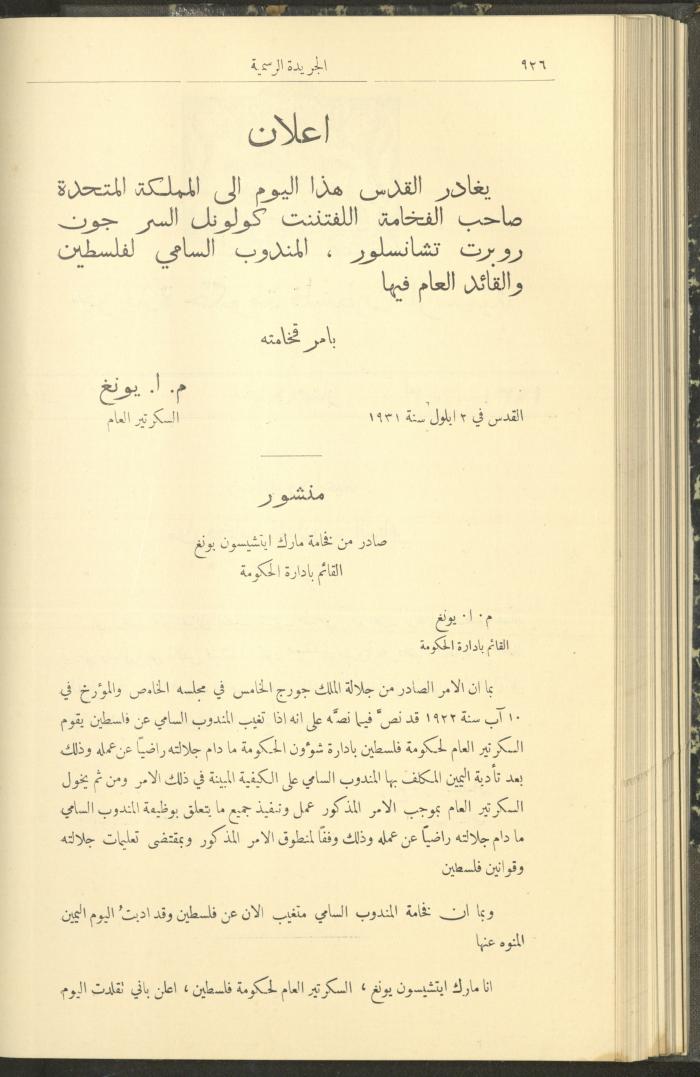 ٩٢٦
الجريدة الرسمية
اعلان
يغادر القدس هذا اليوم الى المملكة المتحدة
صاحب الفخامة اللفتننت كولونل السر جون
روبرت تشانسلور ، المندوب السامي لفلسطين
والقائد العام فيها
بامر فخامته
م. ا. يونغ
السكرتير العام
القدس في ٢ ايلول سنة ١٩٣١
منشور
صادر من فخامة مارك ايتشيسون يونغ
القائم بادارة الحكومة
م. ا. يونغ
القائم بادارة الحكومة
بما ان الامر الصادر من جلالة الملك جورج الخامس في مجلسه الخاص والمؤرخ في
١٠ آب سنة ١٩٢٢ قد نصَّ فيما نصَّه على انه اذا تغيب المندوب السامي عن فلسطين يقوم
السكرتير العام لحكومة فلسطين بادارة شؤون الحكومة ما دام جلالته راضيًا عن عمله وذلك
بعد تأدية اليمين المكلف بها المندوب السامي على الكيفية المبينة في ذلك الامر ومن ثم يخول
السكرتير العام بموجب الامر المذكور عمل وتنفيذ جميع ما يتعلق بوظيفة المندوب السامي
ما دام جلالته راضيًا عن عمله وذلك وفقًا لمنطوق الامر المذكور وبمقتضى تعليمات جلالته
وقوانين فلسطين
وبما ان فخامة المندوب السامي متغيب الان عن فلسطين وقد اديتُ اليوم اليمين
المنوه عنها
انا مارك ايتشيسون يونغ ، السكرتير العام لحكومة فلسطين ، اعلن باني تقلدت اليوم